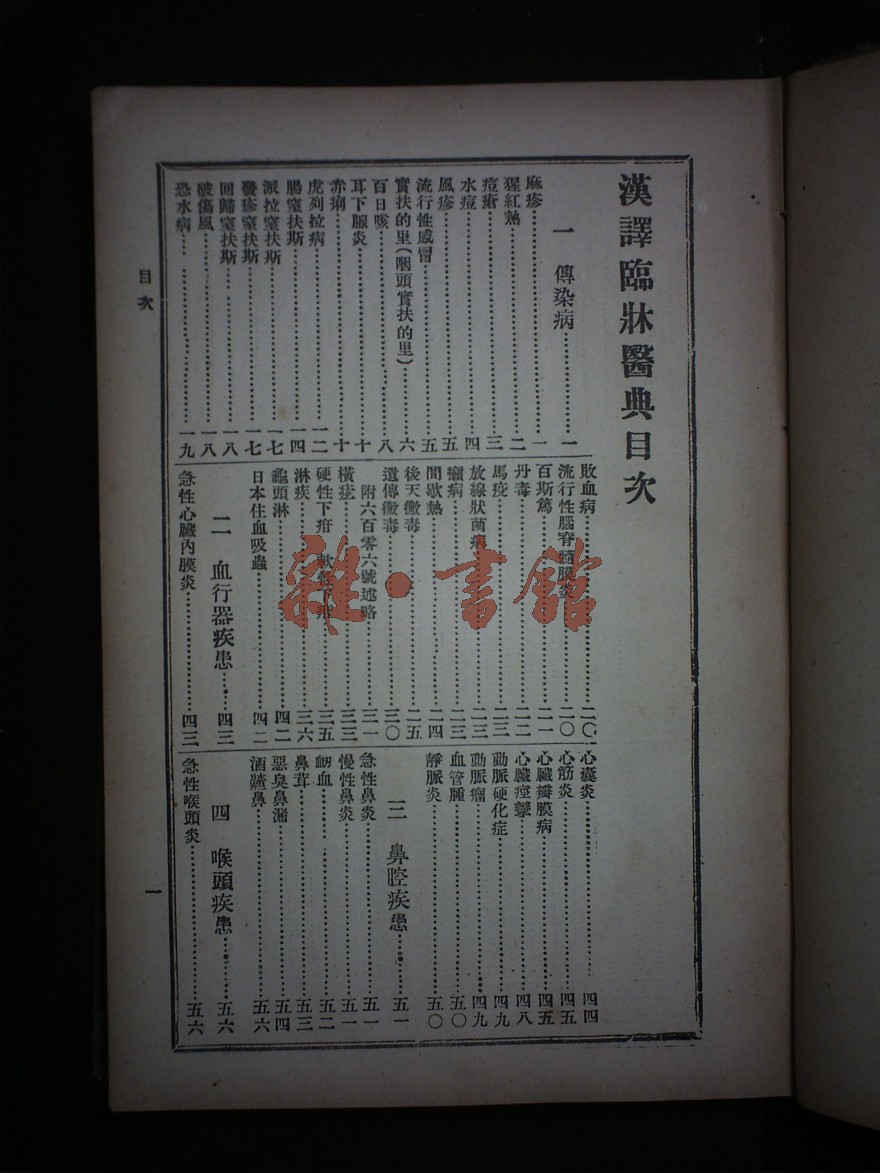 漢譯臨牀醫典目次
一 傳染病………一
麻疹………一
猩紅熱………二
痘瘡………三
水痘………四
風疹………五
流行性感冒………五
實扶的里(咽頭實扶的里)………六
百日咳………八
耳下腺炎………十
赤痢………十
虎列拉病………一二
腸窒扶斯………一四
派拉窒扶斯………一七
發疹窒扶斯………一七
回歸窒扶斯………一八
破傷風………一八
恐水病………一九
敗血病………二〇
流行性腦脊髓膜炎………二〇
百斯篤………二一
丹毒………二二
馬疫………二三
放線狀菌病………二三
癩病………二三
間歇熱………二四
後天黴毒………二五
遺傳黴毒………三〇
附六百零六號述略………三一
橫痃………三三
硬性下疳 軟性下疳………三五
淋疾………三六
龜頭淋………四二
日本住血吸蟲………四二
二 血行器疾患………四三
急性心臟內膜炎………四三
心囊炎………四四
心筋炎………四五
心臟瓣膜病………四五
心臟痙攣………四八
動脈硬化症………四九
動脈瘤………四九
血管腫………五〇
靜脈炎………五〇
三 鼻腔疾患………五一
急性鼻炎………五一
慢性鼻炎………五一
衂血………五二
鼻茸………五三
惡臭鼻漏………五四
酒皶鼻………五六
四 喉頭疾患………五六
急性喉頭炎………五六
目次
一
雜·書館